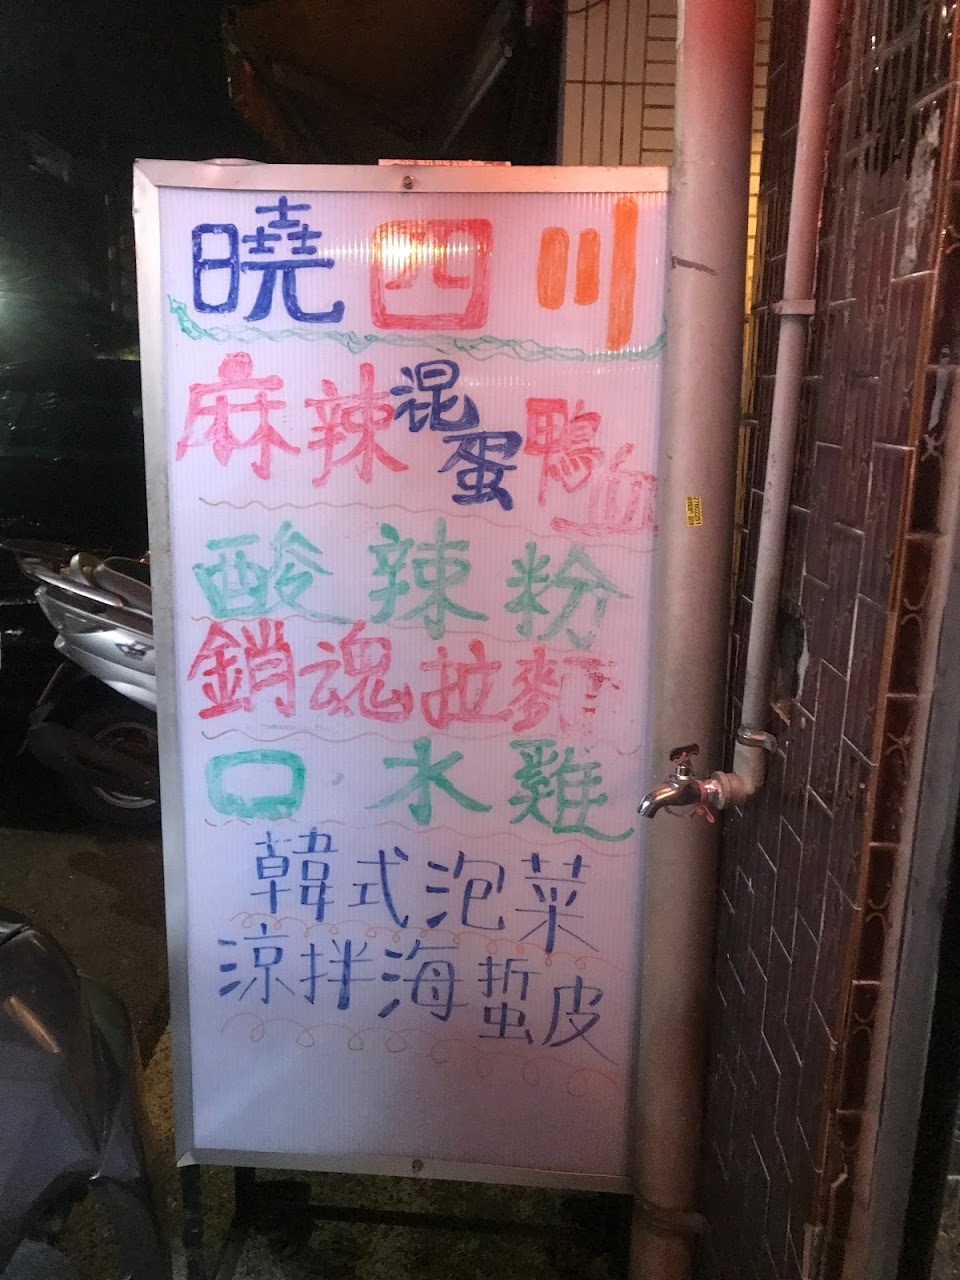 曉四川
麻辣混蛋鴨血
酸辣粉
銷魂拉麵
口水雞
韓式泡菜
涼拌海蜇皮